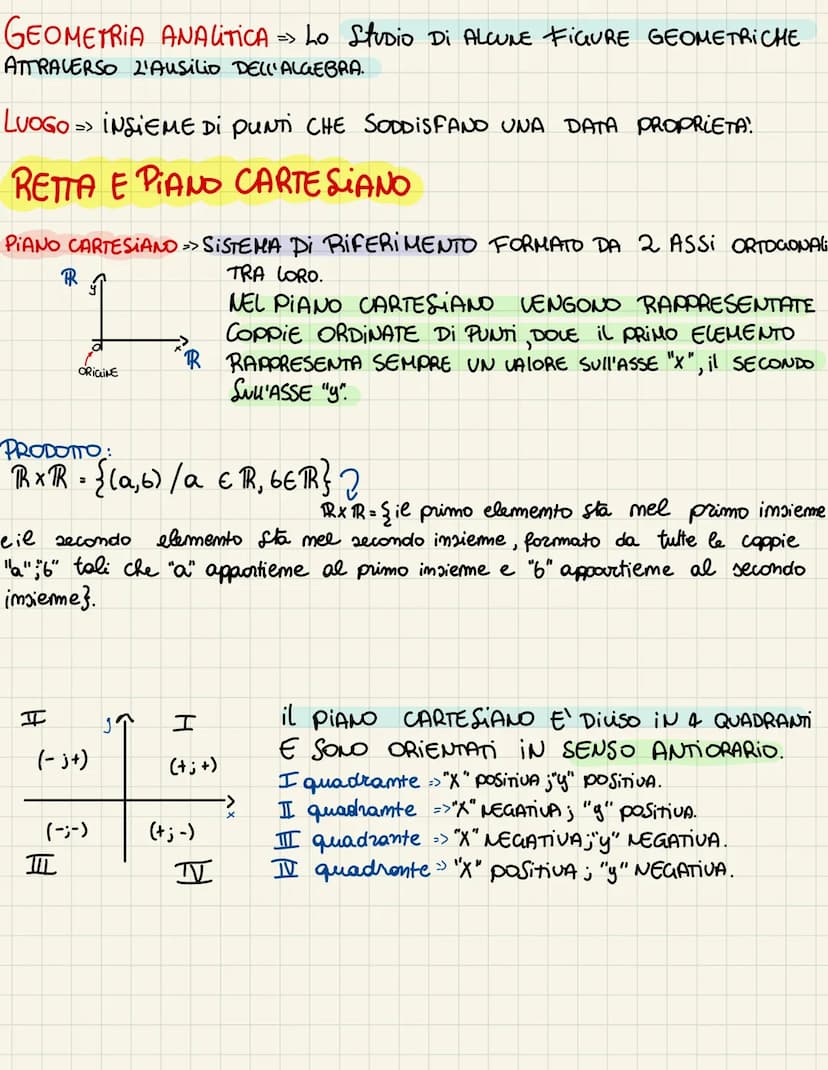 GEOMETRIA ANALITICA => LO STUDIO DI ALCUNE FIGURE GEOMETRICHE
ATTRAVERSO L'AUSILIO DELL'ALGEBRA.
LUOGO => INSIEME DI PUNTI CHE SODDISFANO UNA DATA PROPRIETA'.
RETTA E PIANO CARTESIANO
PIANO CARTESIANO => SISTEMA DI RIFERIMENTO FORMATO DA 2 ASSI ORTOGONALI
TRA LORO.
ℝ y
x ℝ
ORIGINE
NEL PIANO CARTESIANO VENGONO RAPPRESENTATE
COPPIE ORDINATE DI PUNTI, DOVE IL PRIMO ELEMENTO
RAPPRESENTA SEMPRE UN VALORE SULL'ASSE "X", IL SECONDO
SULL'ASSE "y".
PRODOTTO:
ℝ×ℝ = {(a,b) / a ∈ ℝ, b∈ℝ}
ℝ×ℝ = {il primo elemento sta nel primo insieme
e il secondo elemento sta nel secondo insieme, formato da tutte le coppie
"a";"b" tali che "a" appartiene al primo insieme e "b" appartiene al secondo
insieme}.
II y I
(-;+) (+;+)
x
(-;-) (+;-)
III IV
IL PIANO CARTESIANO E' DIVISO IN 4 QUADRANTI
E SONO ORIENTATI IN SENSO ANTIORARIO.
I quadrante => "X" POSITIVA ;"y" POSITIVA.
II quadrante => "X" NEGATIVA ; "y" POSITIVA.
III quadrante => "X" NEGATIVA;"y" NEGATIVA.
IV quadrante => "X" POSITIVA ; "y" NEGATIVA.